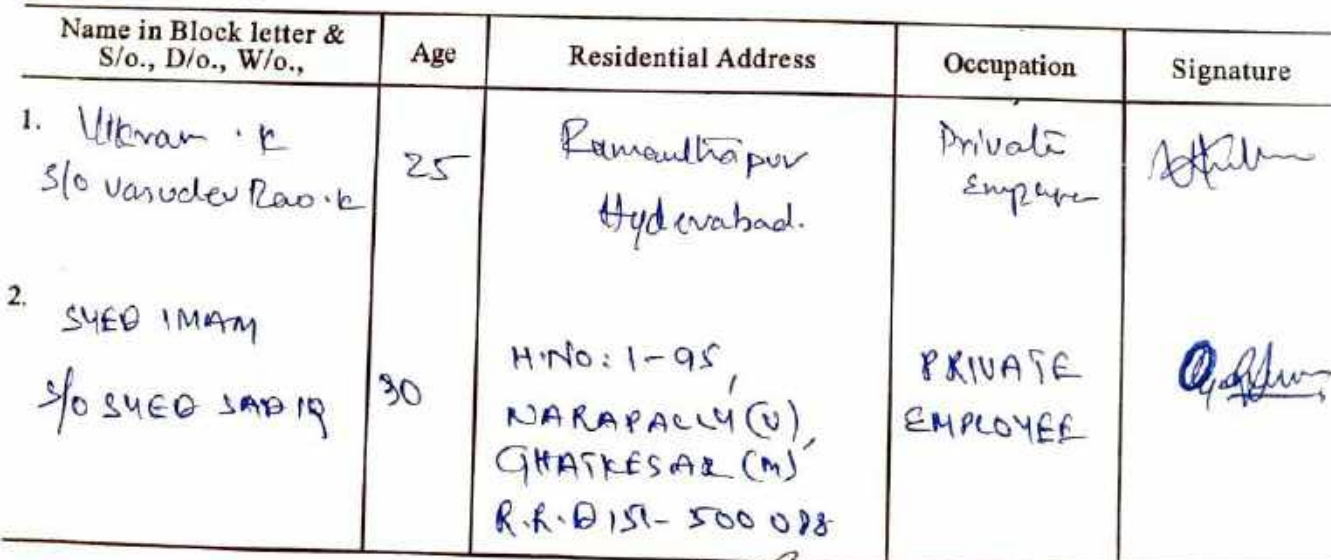 Name in Block letter & S/o., D/o., W/o., Age Residential Address Occupation Signature
1. Vikram . K
S/o Vasudev Rao. k
25
Ramanthapur
Hyderabad.
Private
Employee
2. SYED IMAM
S/o SYED SADIQ
30
H.NO: 1-95,
NARAPALLY (V),
GHATKESAR (M)
R.R.DIST- 500 088
PRIVATE
EMPLOYEE